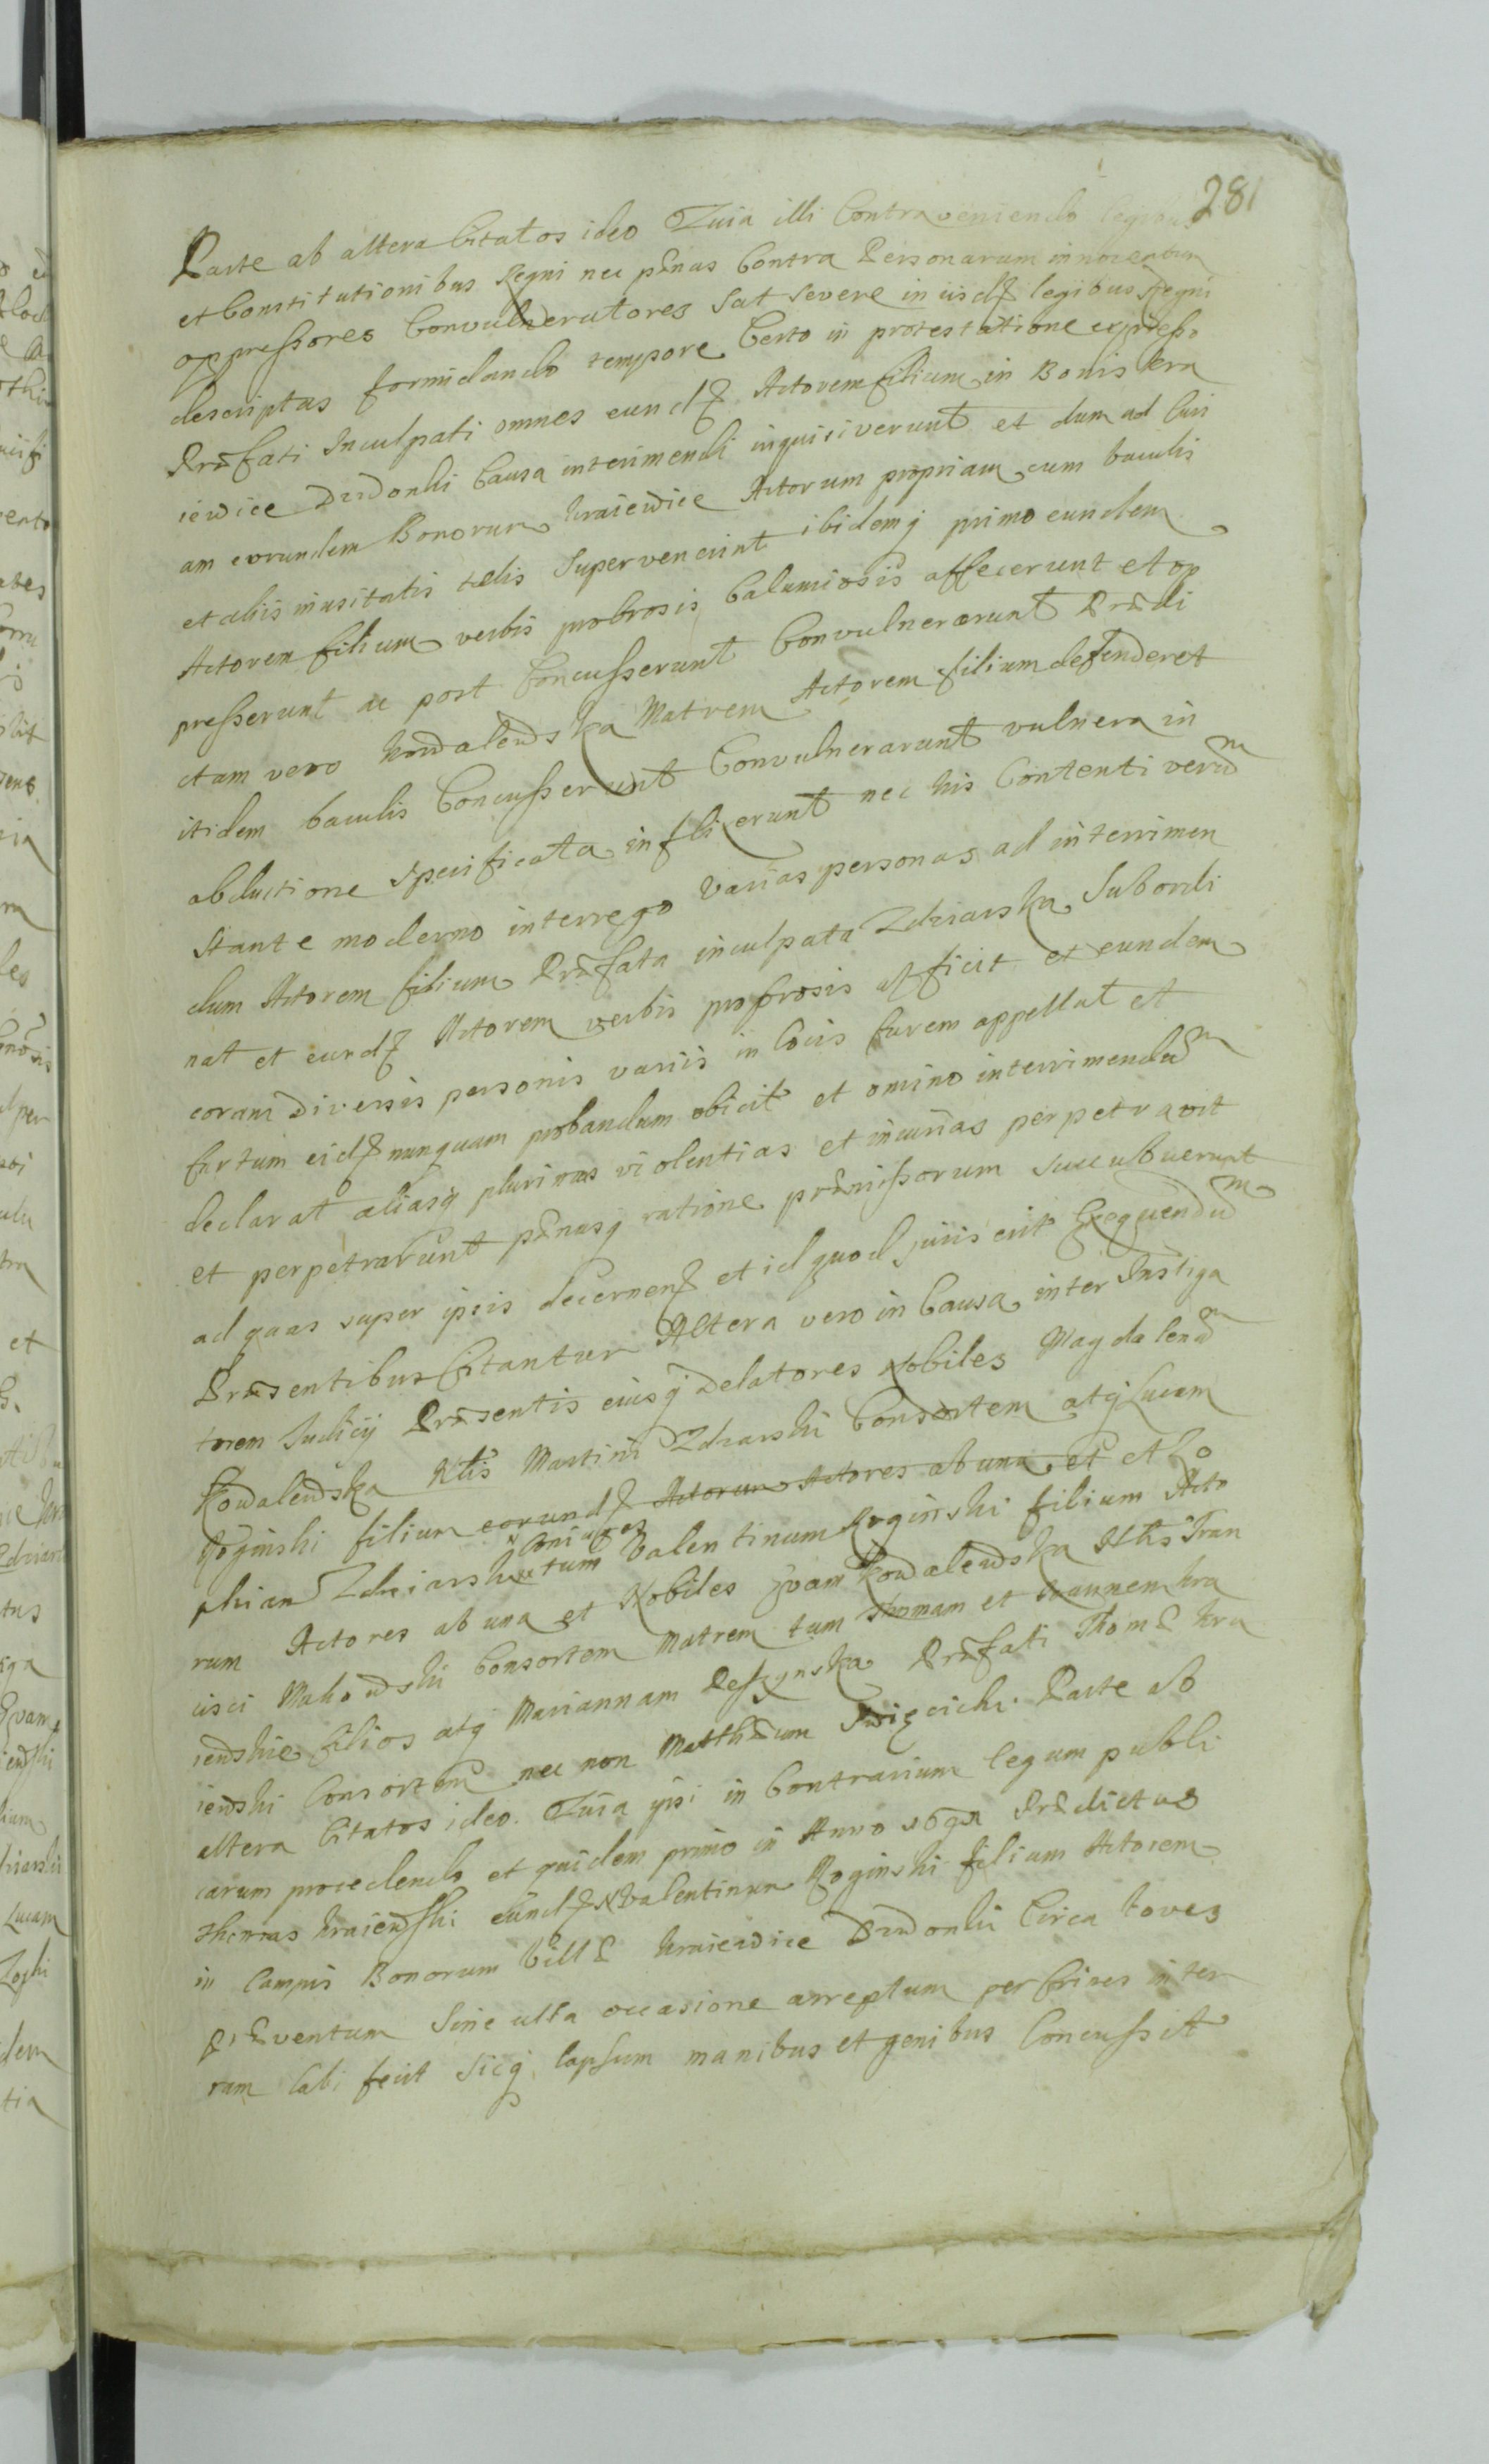 281
Parte ab altera Citatos ideo Quia illi Contraveniendo legibus
et Constitutionibus Regni nec pænas Contra Personarum innocentum
oppressores Convulneratores sat severe in iisdẽ legibus Regni
descriptas formidando tempore Certo in protestatione expresso
Præfati Inculpati omnes eundẽ Actorem filium in Bonis Kra
iewice Dwdonki Causa interimendi inquisiverunt et dum ad Curi
am eorundem Bonorum Kraiewice Actorum propriam cum baculis
et aliis inusitatis telis supervenerint ibidemq primo eundem
Actorem filium verbis probrosis Calumiosis affecerunt et op
presserunt ac post Concusserunt Convulnerarunt Prædi
ctam vero Kowalewska Matrem Actorem filium defenderet
itidem baculis Concusserunt Convulnerarunt vulnera in
obductione specificata inflixerunt nec his Contenti verũm
stante moderno interregno varias personas ad interrimen
dum Actorem filium Præfata inculpata Zdziarska Subordi
nat et eundẽ Actorem verbis probrosis afficit et eundem
coram Diversis personis variis in locis furem appellat et
furtum eidẽ nunquam probandum obicit et omino interrimendũm
declarat aliasq plurimas violentias et iniurias perpetravit
et perpetrarunt pænasq ratione præmissorum succubuerunt
ad quas super ipsis decernenẽ et id quod juris erit Exequendũm
Præsentibus Citantur Altera vero in Causa inter Instiga
torem Judicij Præsentis eiusq Delatores Nobiles Magdalenãm
Kowalewska Nlis Martini Zdziarski Consortem atq Lucam
Roginski filium eorundẽ Actorum Actores ab una et et Zo
phian Zdziarski Coniuges tum Valentinum Roginski filium Acto
rum Actores ab una et Nobiles Evam Kowalewska Nlis Fran
cisci Makowski Consortem Matrem tum Thomam et Joannem Kra
iewskie filios atq Mariannam Peszynska Præfati Thomæ Kra
iewski Consortem nec non Matthæum Swięcicki Parte ab
altera Citatos ideo Quia ipsi in Contrarium legum publi
carum procedendo et quidem primo in Anno Prædictus
Thomas Kraiewski eundẽ N Valentinum Roginski filium Actorem
in Campis Bonorum Villæ Kraiewice Dwdonki Circa boves
præventum sine ulla occasione arreptum per Crines in ter
ram labi fecit sicq lapsum manibus et genibus Concussit